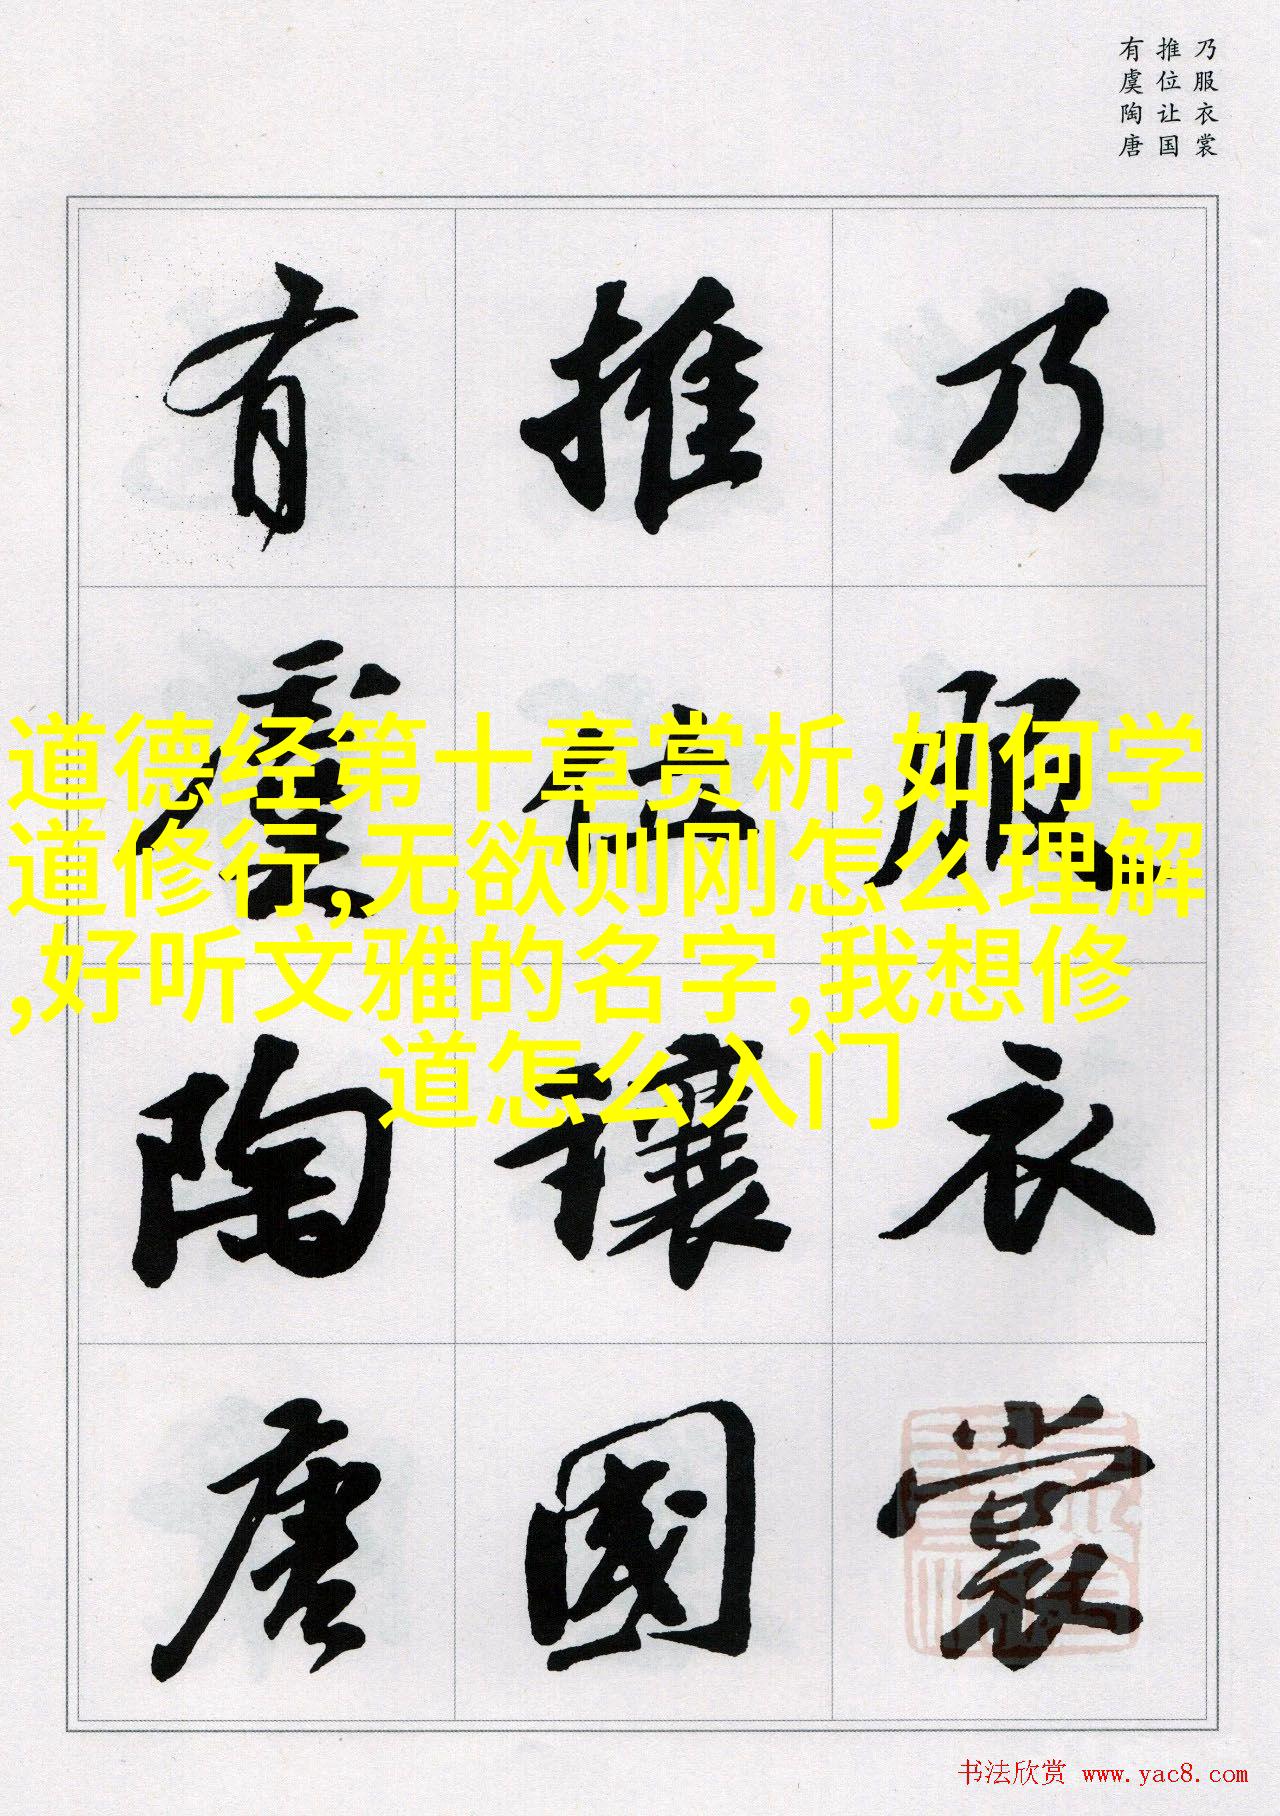 乃服衣裳
推位让国
有虞陶唐
乃服衣裳
推位讓國
有虞陶唐
道德经第十章赏析,如何学
道修行,无欲则刚怎么理解
,好听文雅的名字,我想修
道怎么入门
书法欣赏 www.yac8.com